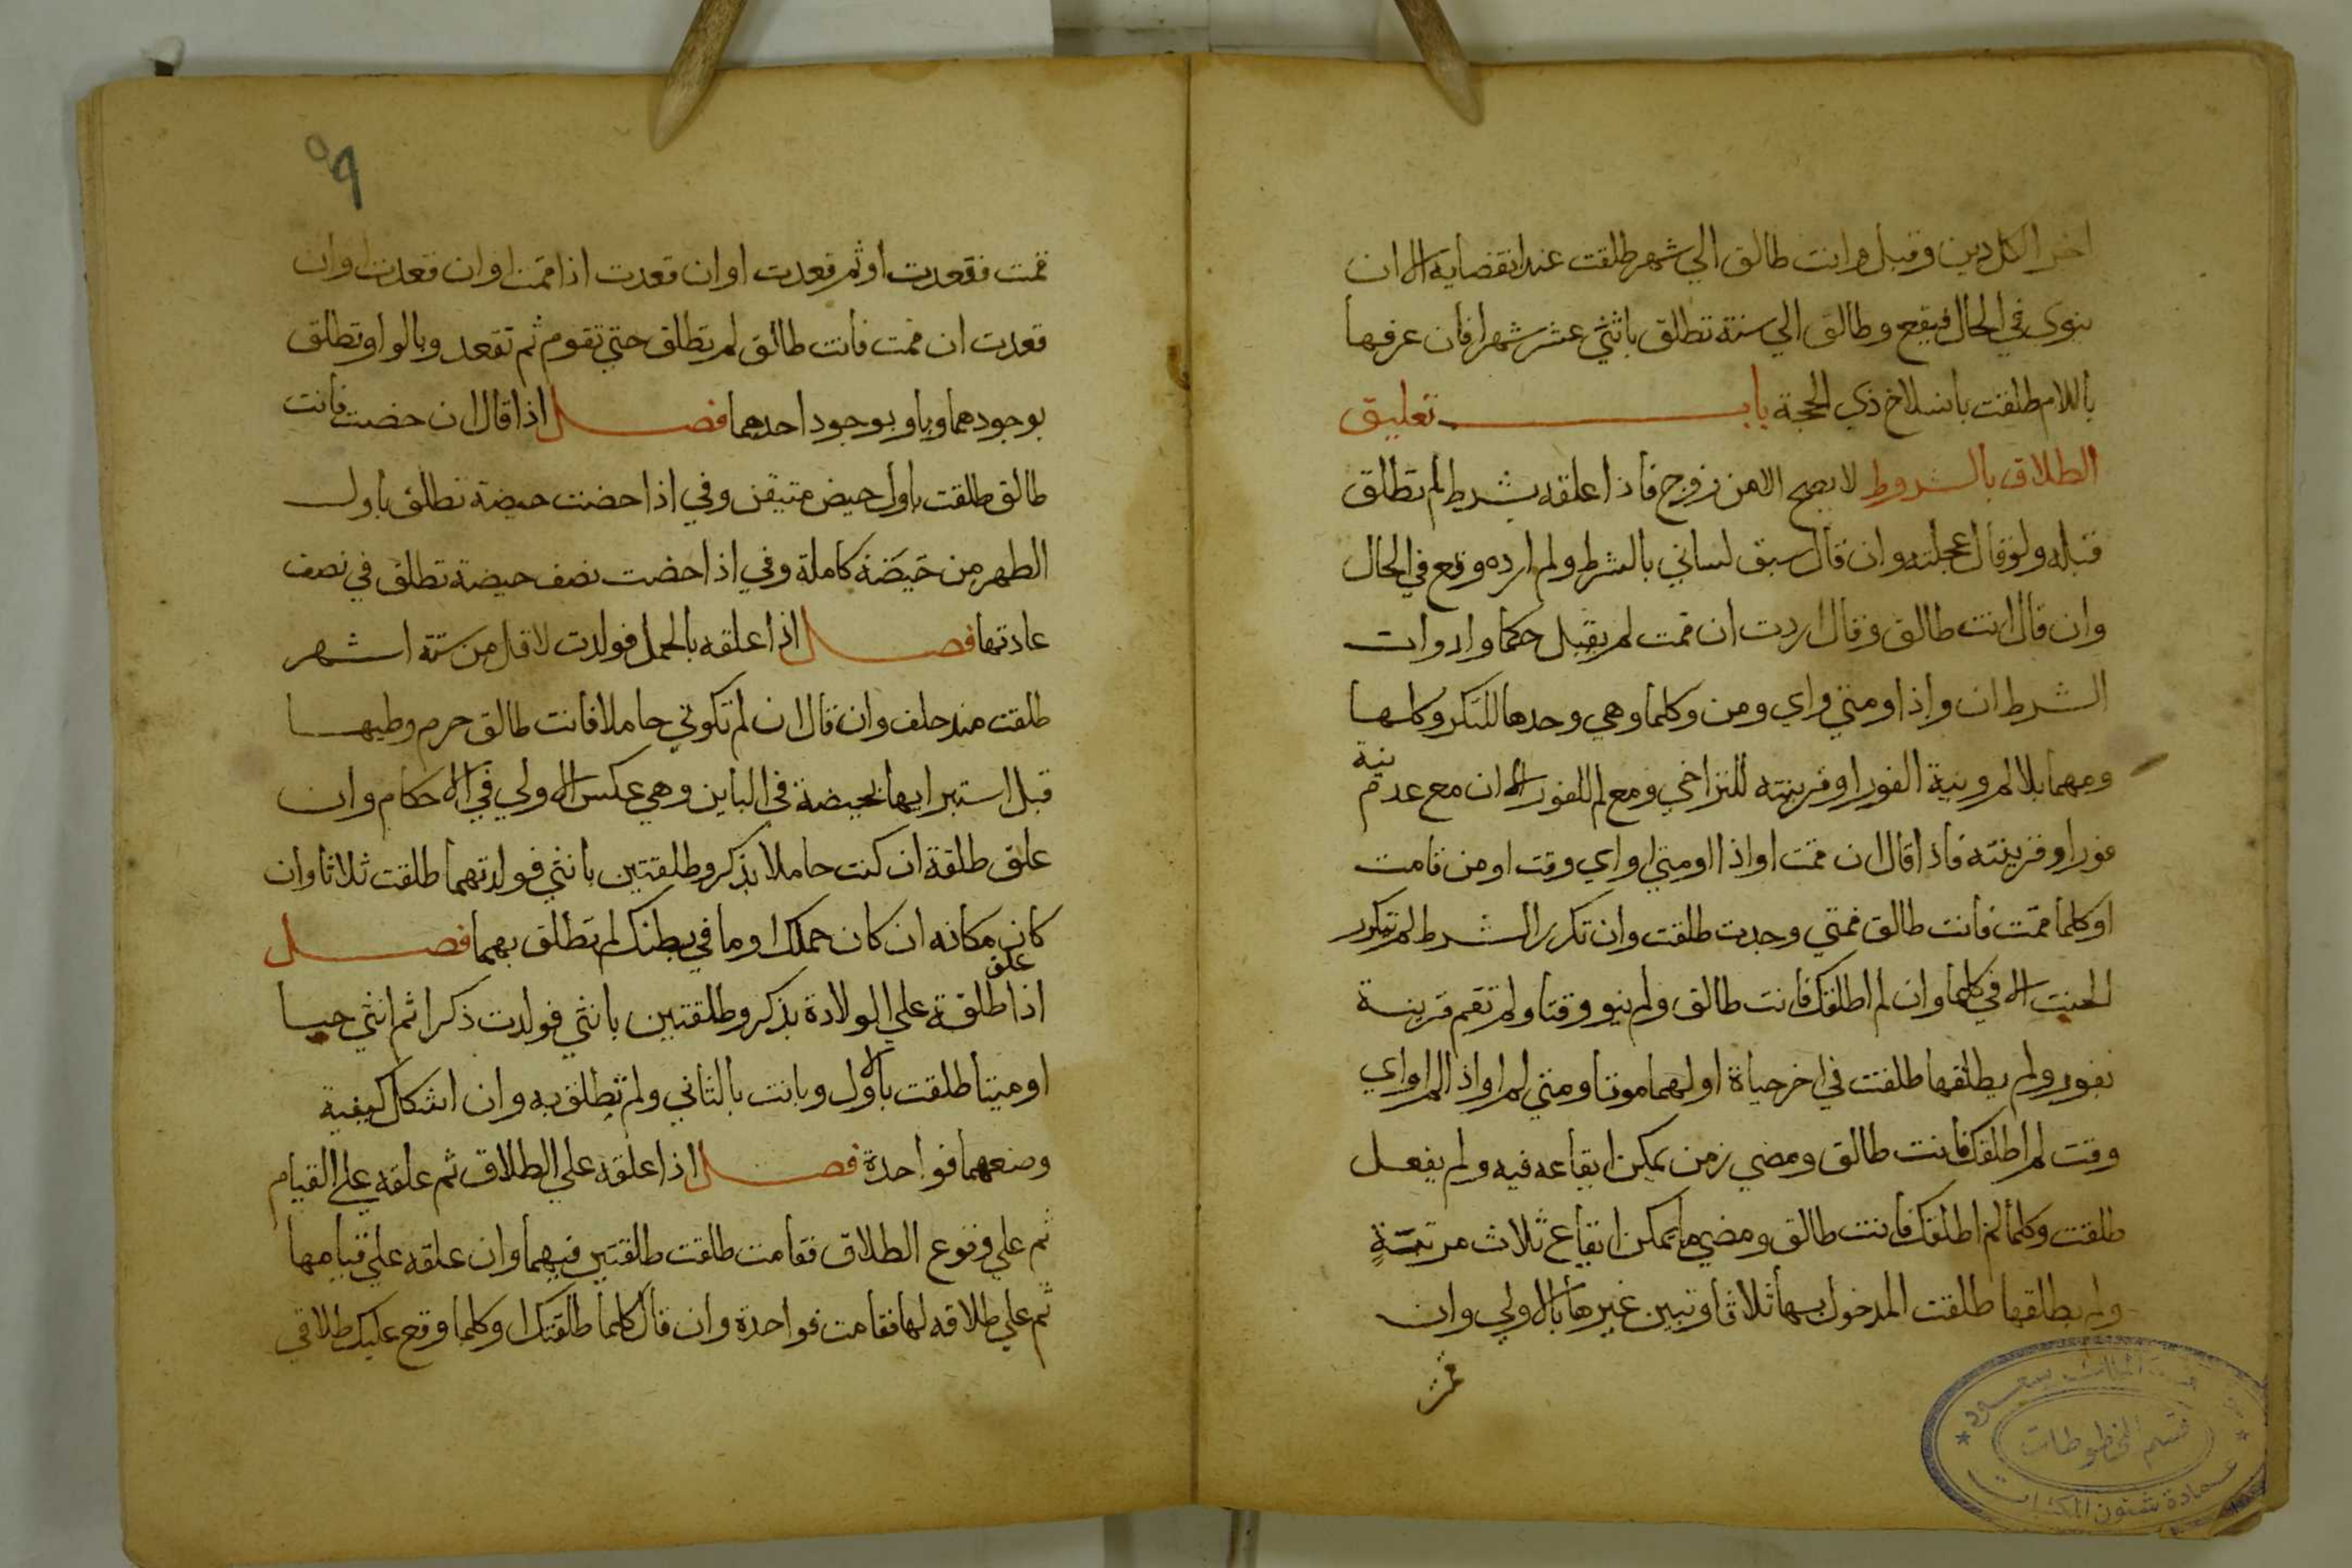 اخر الكل دين وقبل وانت طالق الي شهر طلقت عند انقضايه الا ان
ينوي في الحال فيقع وطالق الي سنة تطلق باثني عشر شهرا فان عرفها
باللام طلقت بانسلاخ ذي الحجة باب تعليق
الطلاق بالشروط لا يصح الا من زوج فاذا علقه بشرط لم تطلق
قبله ولو قال عجلته وان قال سبق لساني بالشرط ولم ارده وقع في الحال
وان قال انت طالق وقال اردت ان قمت لم يقبل حكما وادوات
الشرط ان واذا ومتي واي ومن وكلما وهي وحدها للتكر وكلها
ومهما بلا لم ونية الفور او قرينته للتراخي ومع لم للفور الا ان مع عدم نية
فورا وقرينته فاذا قال ان قمت او اذا او متي او اي وقت او من قامت
او كلما قمت فانت طالق فمتي وجدت طلقت وان تكرر الشرط لم يتكرر
الحنث الا في كلما وان لم اطلقك فانت طالق ولم ينو وقتا ولم تقم قرينة
بفور ولم يطلقها طلقت في اخر حياة اولهما موتا ومتي لم او اذا لم او اي
وقت لم اطلقك فانت طالق ومضي زمن يمكن ايقاعه فيه ولم يفعل
طلقت وكلما لم اطلقك فانت طالق ومضي ما يمكن ايقاع ثلاث مرتبة
ولم يطلقها طلقت المدخول بها ثلاثا وتبين غيرها بالاولي وان
قمت
٥٩
قمت فقعدت او ثم قعدت او ان قعدت اذا قمت او ان قعدت وان
قعدت ان قمت فانت طالق لم تطلق حتي تقوم ثم تقعد وبالواو تطلق
بوجودهما وباو بوجود احدهما فصل اذا قال ان حضت فانت
طالق طلقت باول حيض متيقن وفي اذا حضت حيضة تطلق باول
الطهر من حَيَضَة كاملة وفي اذا حضت نصف حيضة تطلق في نصف
عادتها فصل اذا علقه بالحمل فولدت لاقل من ستة اشهر
طلقت منذ حلف وان قال ان لم تكوني حاملا فانت طالق حرم وطيها
قبل استبرايها بحيضة في الباين وهي عكس الاولي في الاحكام وان
علق طلقة ان كنت حاملا بذكر وطلقتين بانثي فولدتهما طلقت ثلاثا وان
كان مكانه ان كان حملك او ما في بطنك لم تطلق بهما فصل
اذا علق طلقة علي الولادة بذكر وطلقتين بانثي فولدت ذكرا ثم انثي حيا
او ميتا طلقت بالاول وبانت بالثاني ولم تطلق به وان اشكل كيفية
وضعهما فواحدة فصل اذا علقه علي الطلاق ثم علقه علي القيام
ثم علي وقوع الطلاق فقامت طلقت طلقتين فيهما وان علقه علي قيامها
ثم علي طلاقه لها فقامت فواحدة وان قال كلما طلقتك او كلما وقع عليك طلاقي
جامعة الملك سعود
قسم المخطوطات
عمادة شئون المكتبات